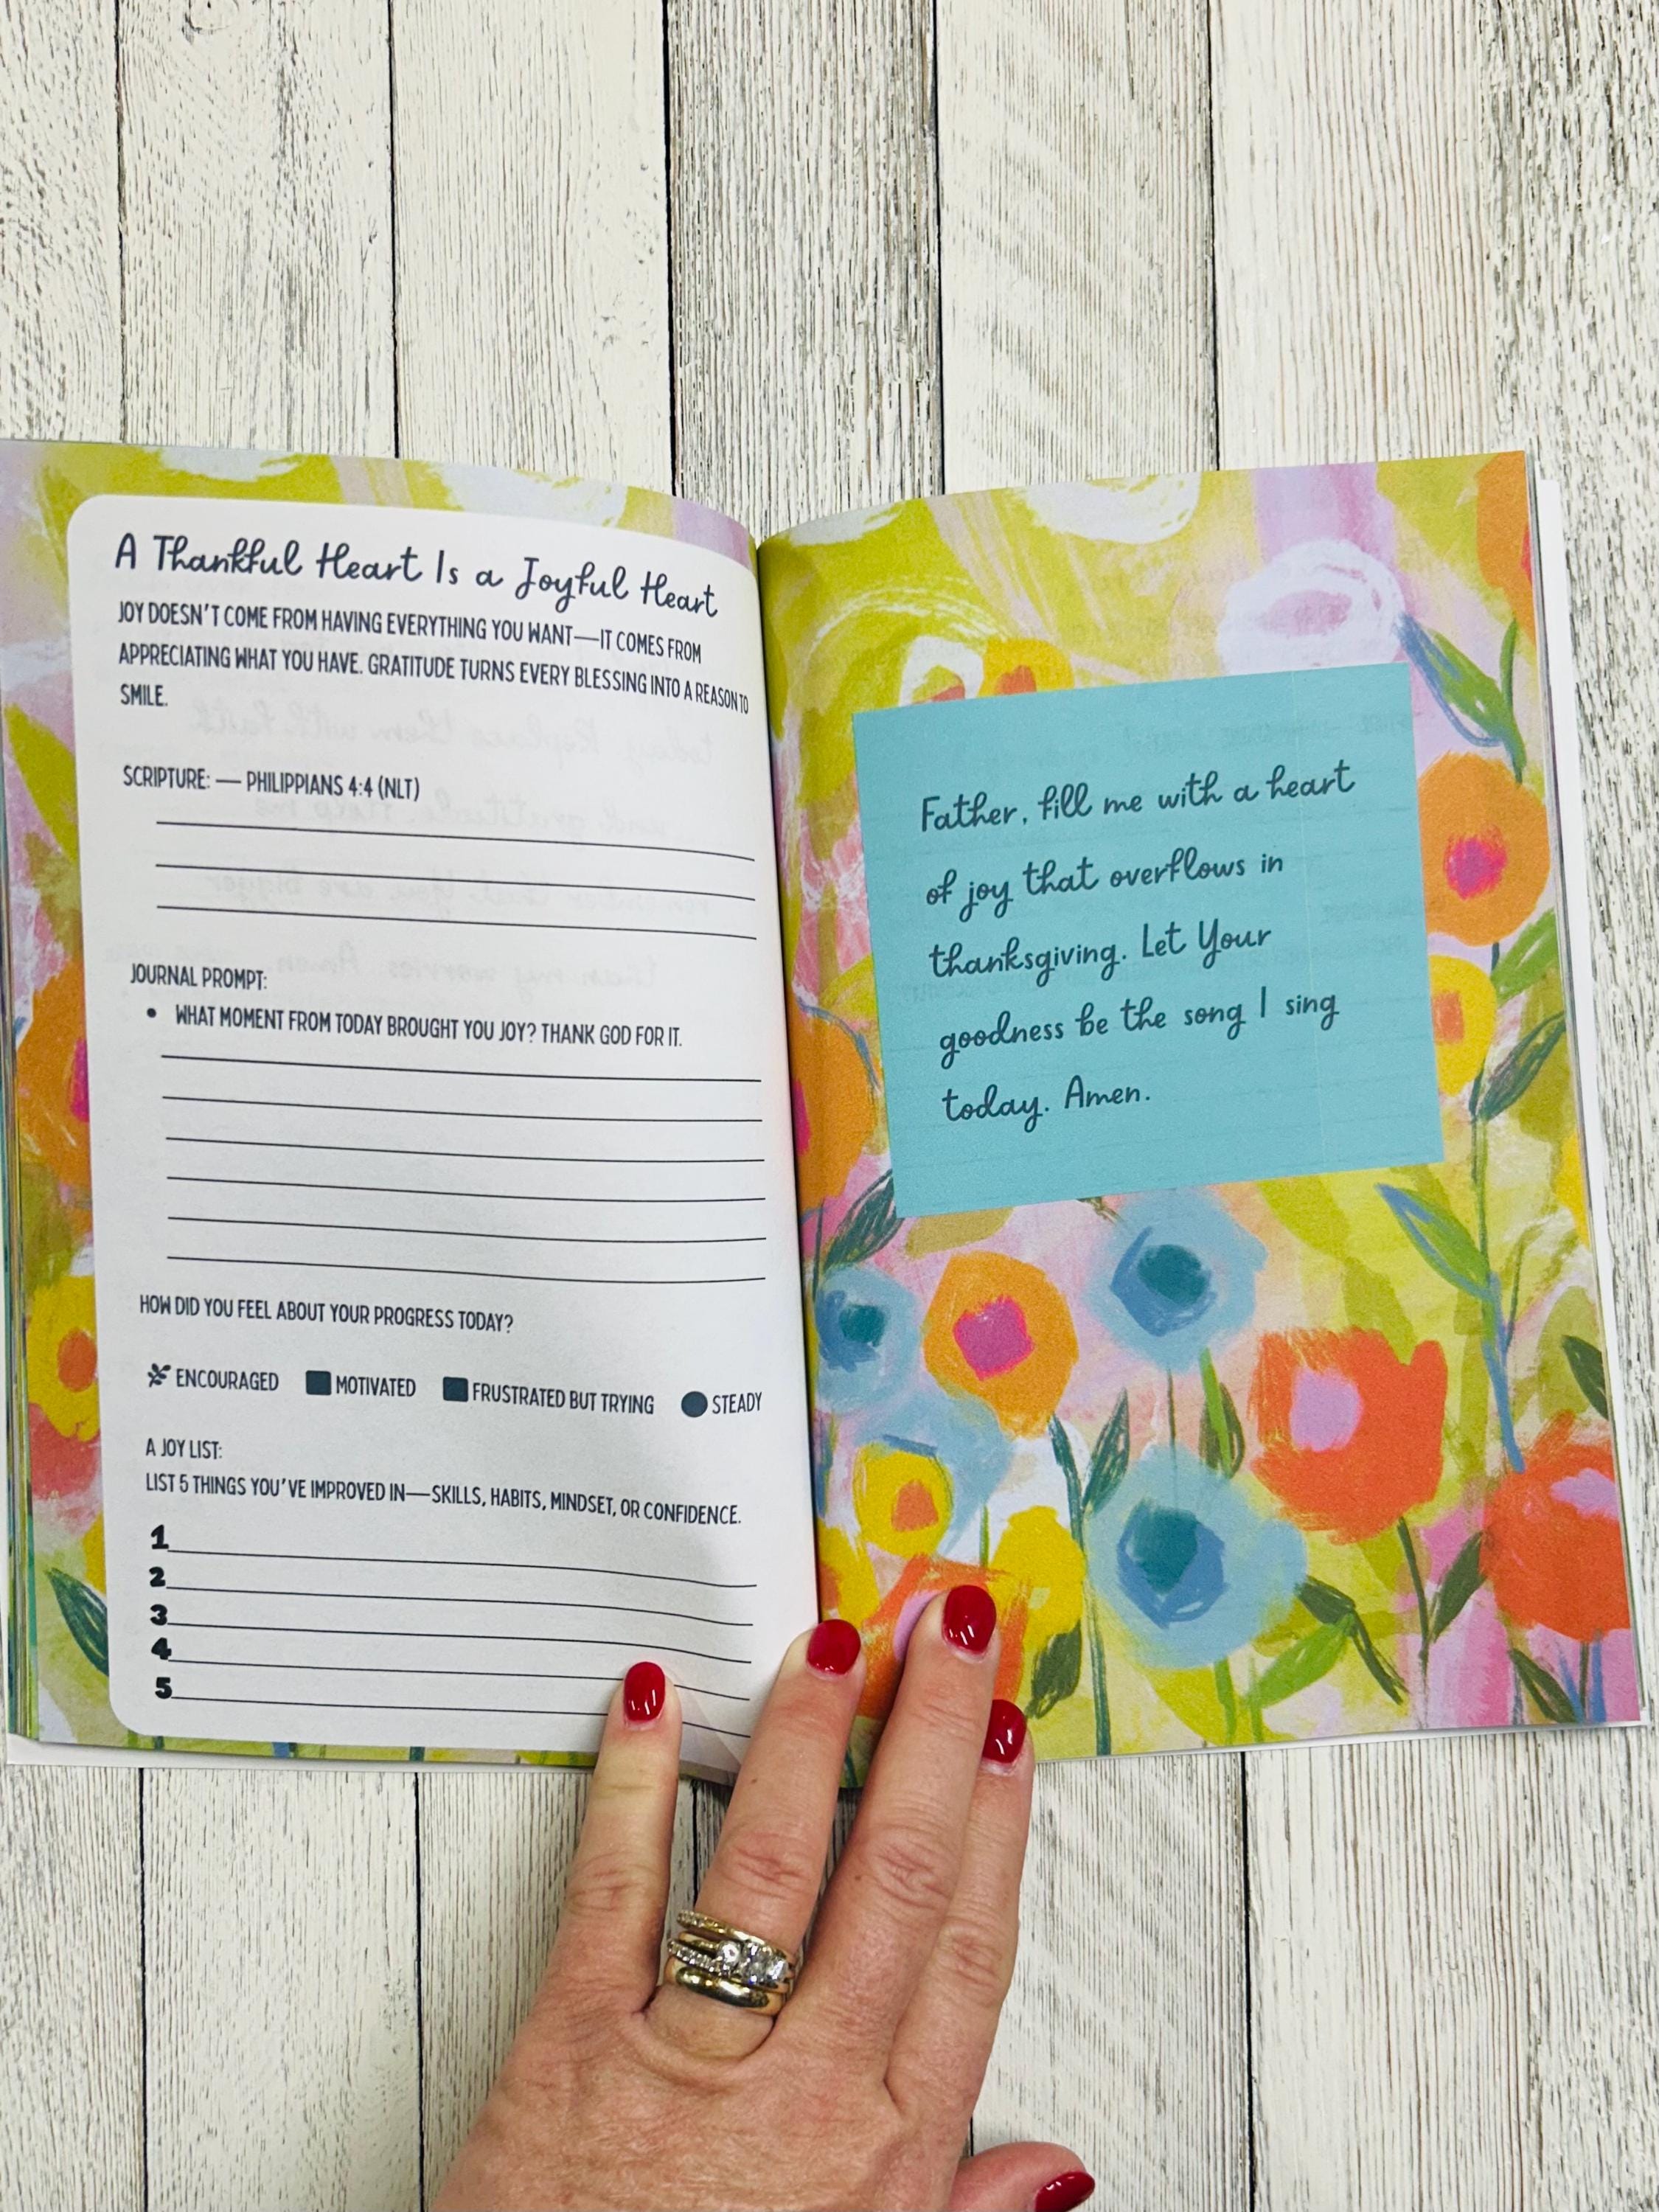 A Thankful Heart Is a Joyful Heart
JOY DOESN'T COME FROM HAVING EVERYTHING YOU WANT—IT COMES FROM
APPRECIATING WHAT YOU HAVE. GRATITUDE TURNS EVERY BLESSING INTO A REASON TO
SMILE.
SCRIPTURE: — PHILIPPIANS 4:4 (NLT)
JOURNAL PROMPT:
• WHAT MOMENT FROM TODAY BROUGHT YOU JOY? THANK GOD FOR IT.
HOW DID YOU FEEL ABOUT YOUR PROGRESS TODAY?
ENCOURAGED MOTIVATED FRUSTRATED BUT TRYING STEADY
A JOY LIST:
LIST 5 THINGS YOU'VE IMPROVED IN—SKILLS, HABITS, MINDSET, OR CONFIDENCE.
1
2
3
4
5
Father, fill me with a heart
of joy that overflows in
thanksgiving. Let Your
goodness be the song I sing
today. Amen.